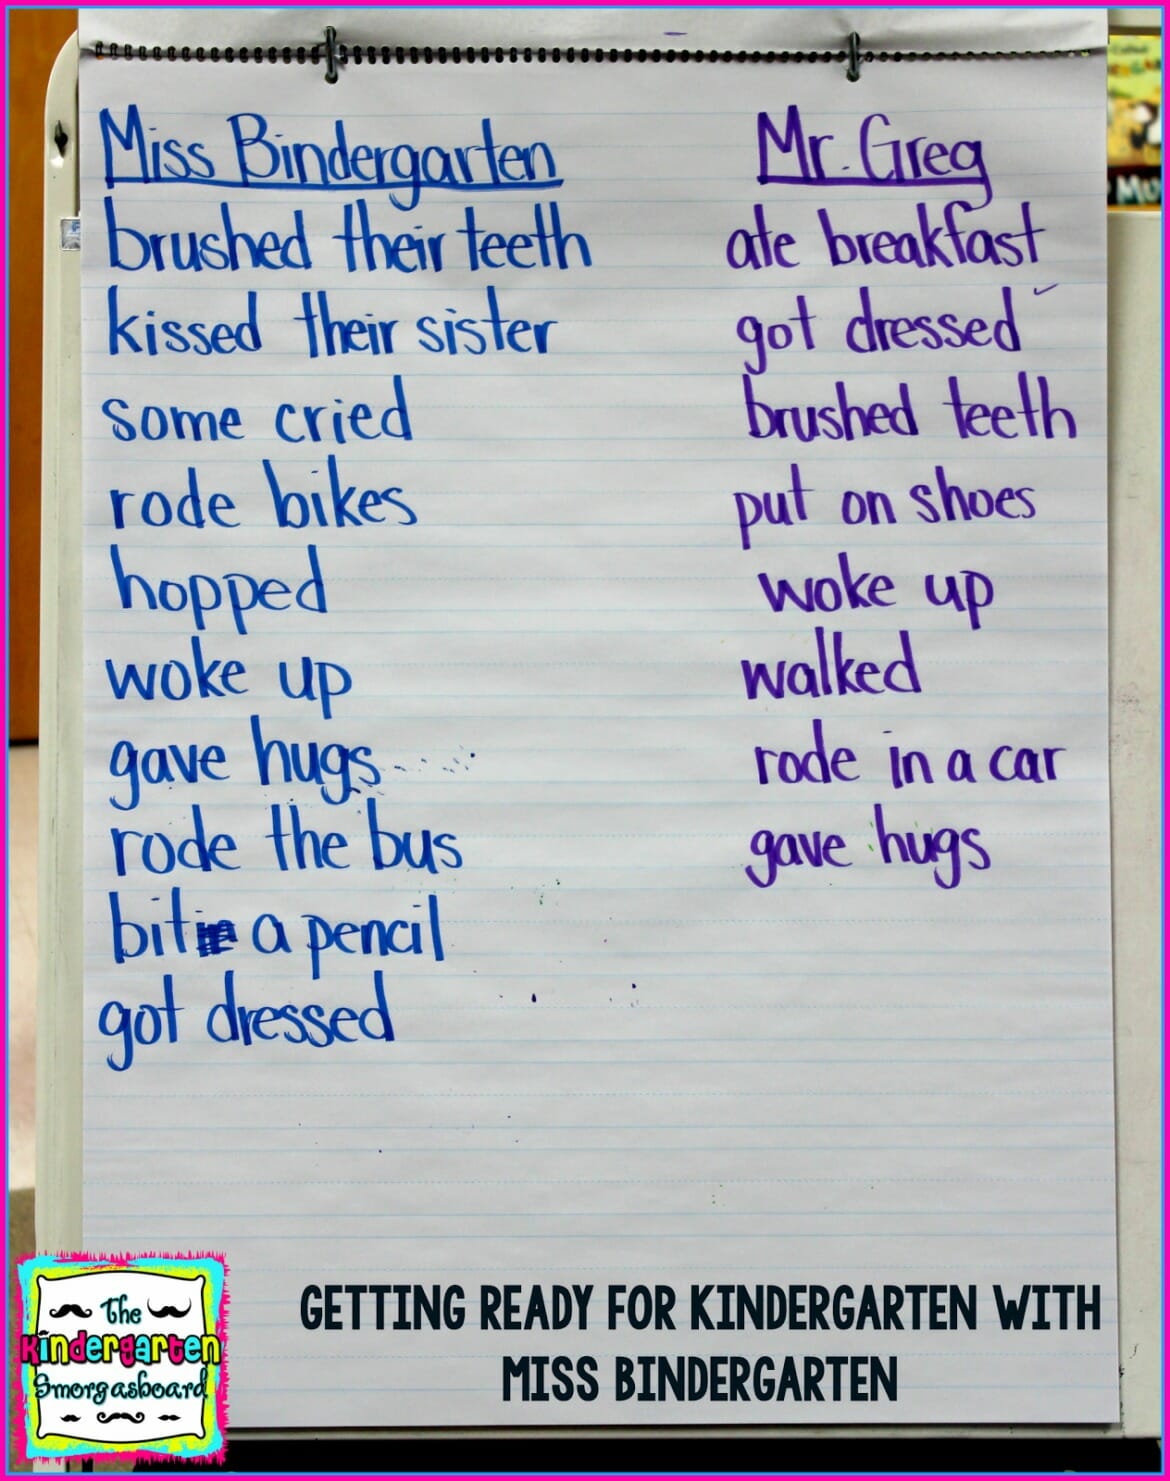 Miss Bindergarten
brushed their teeth
kissed their sister
some cried
rode bikes
hopped
woke up
gave hugs
rode the bus
bit a pencil
got dressed
Mr. Greg
ate breakfast
got dressed
brushed teeth
put on shoes
woke up
walked
rode in a car
gave hugs
The
Kindergarten
Smorgasboard
GETTING READY FOR KINDERGARTEN WITH
MISS BINDERGARTEN